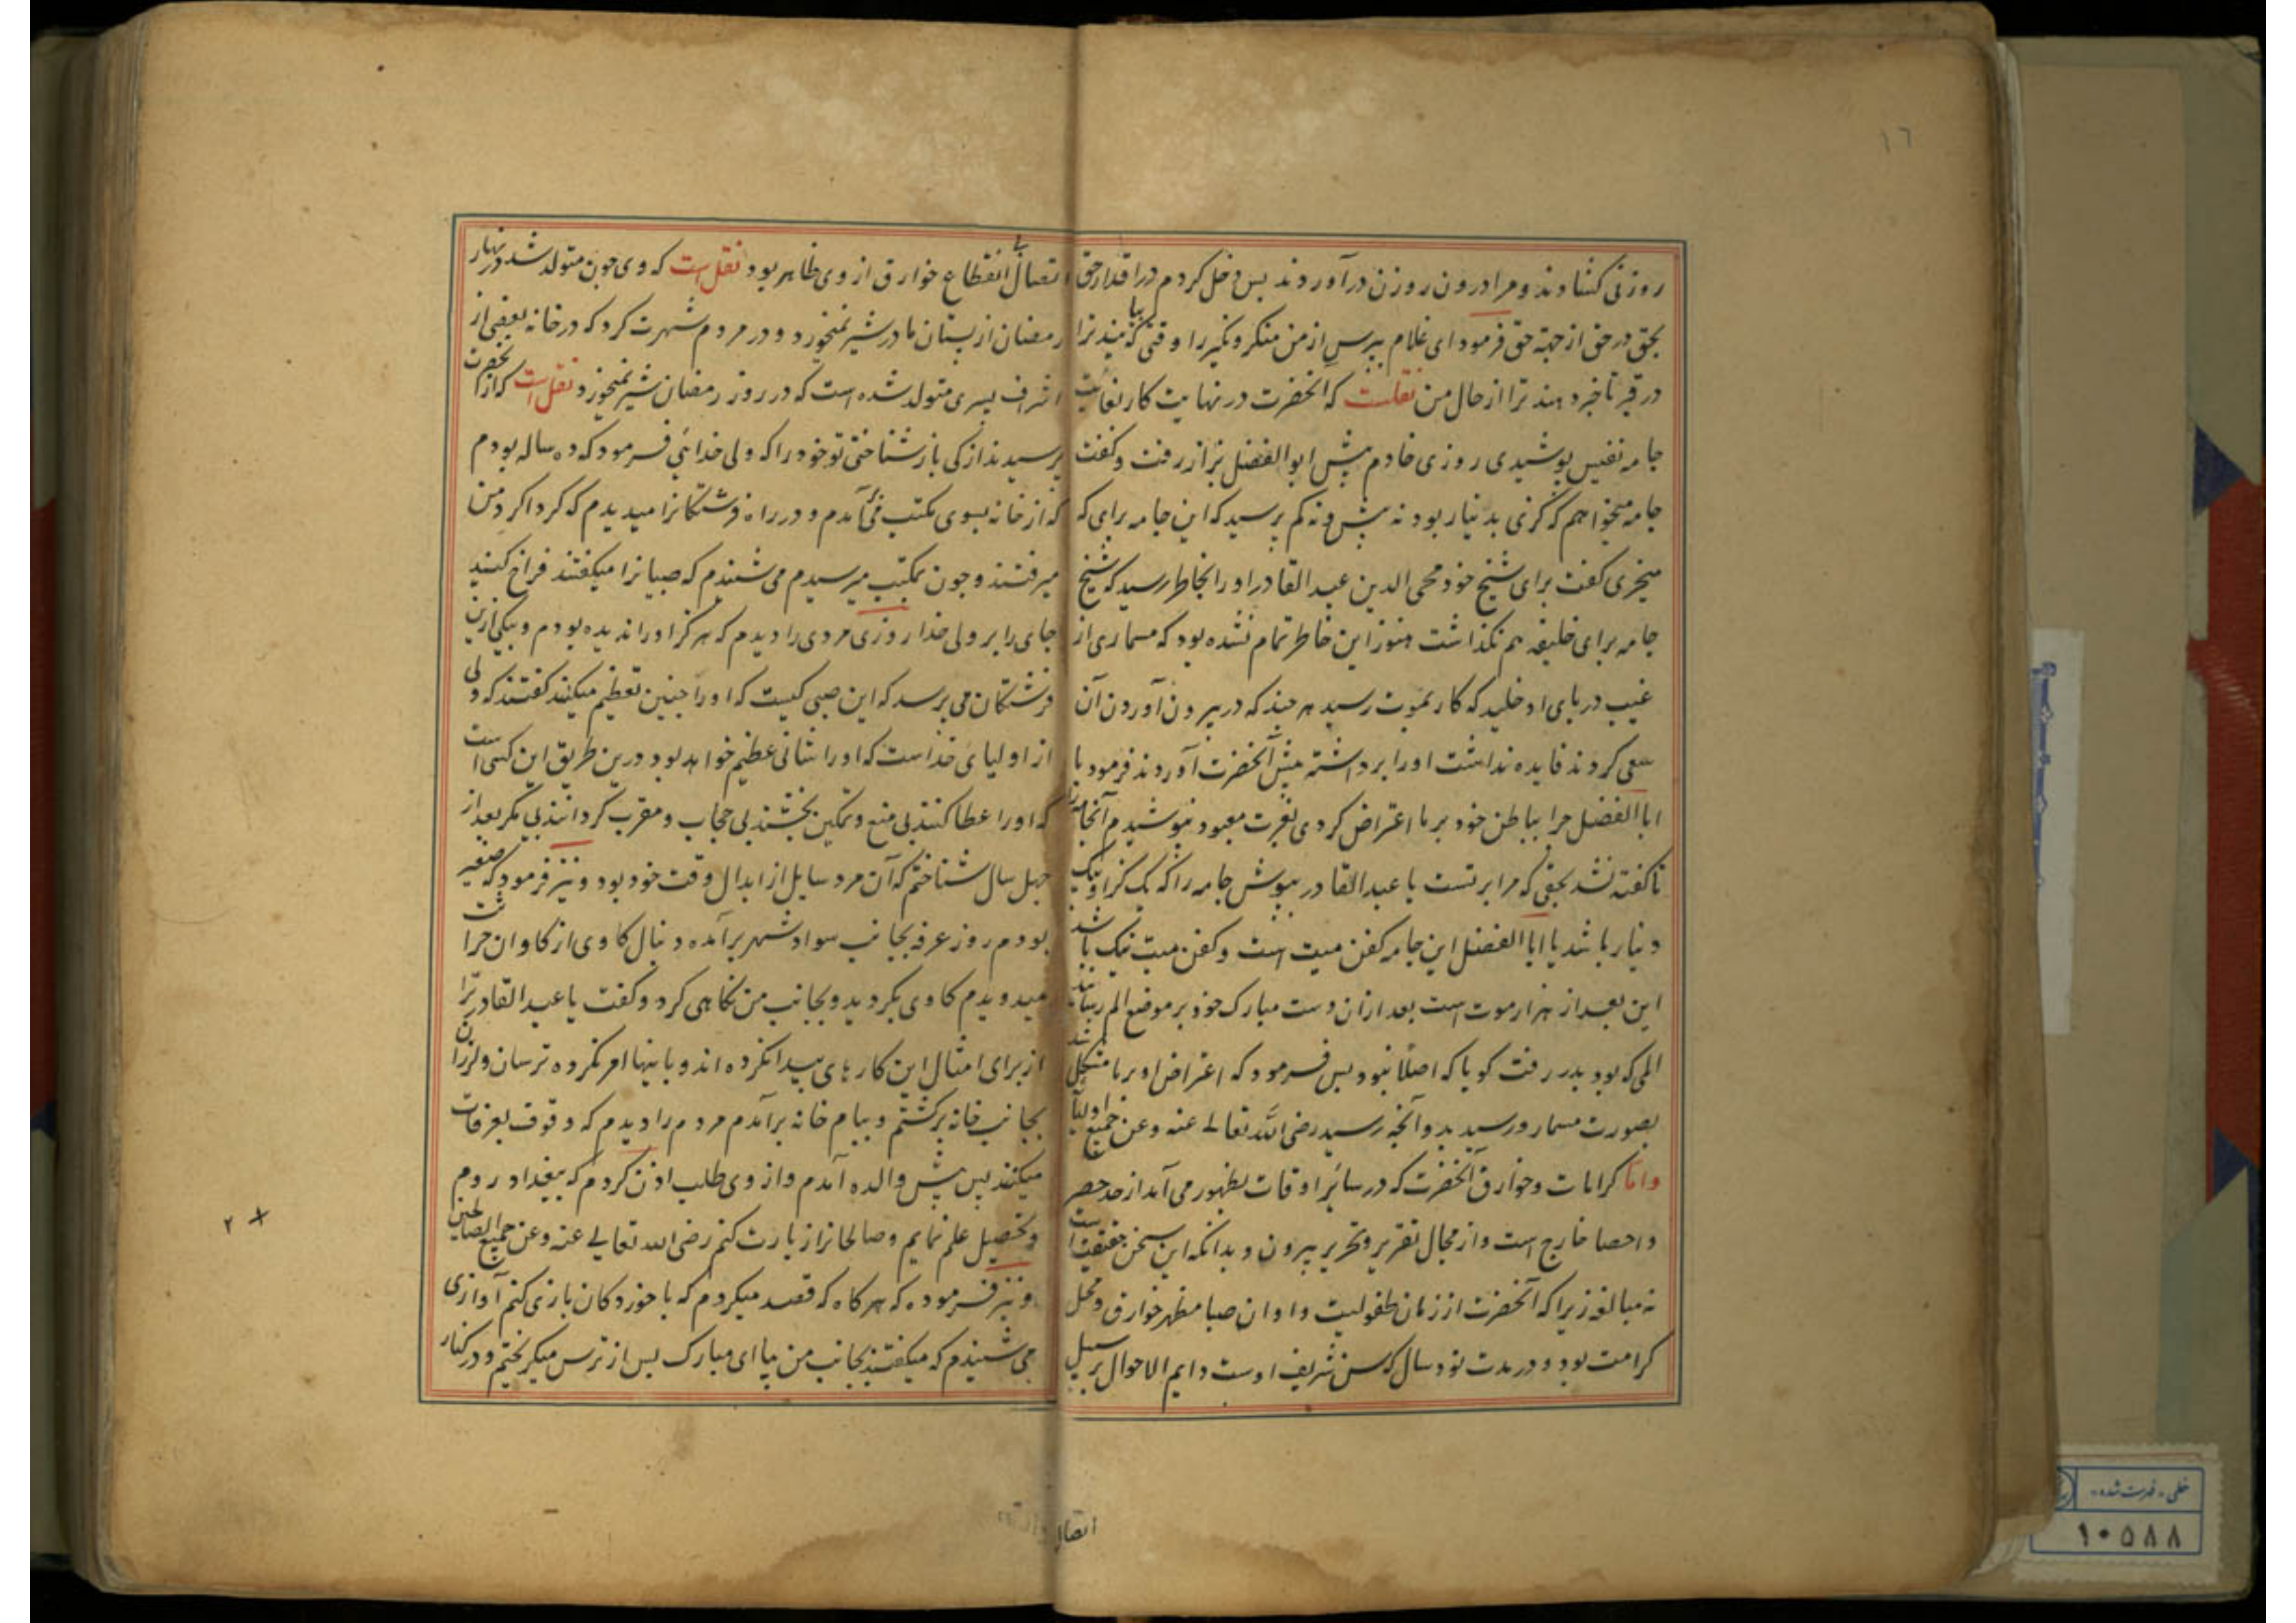 ١٦
روزنی کشادند و مرا درون روزن درآوردند پس دخل کردم در اقدار حق
بحق در حق از جهة حق فرمود ای غلام بپرس از من منکر و نکیر را وقتی که بیایند ترا
در قبر تا خبر دهند ترا از حال من نقلست که آنحضرت در نهایت کار بغایت
جامه نفیس پوشیدی روزی خادم پیش ابو الفضل بزاز رفت و کفت
جامه میخواهم که کزی بدینار بود نه بیش و نه کم پرسید که این جامه برای که
میخری کفت برای شیخ خود محی الدین عبد القادر او را بخاطر رسید که شیخ
جامه برای خلیفه هم نکذاشت هنوز این خاطر تمام نشده بود که مسماری از
غیب در پای او خلید که کار بموت رسید هر چند که در بیرون آوردن آن
سعی کردند فایده نداشت او را برداشته پیش آنحضرت آوردند فرمود یا
ابا الفضل چرا بباطن خود بر ما اعتراض کردی بعزت معبود نپوشیدم آنجامه را
تا کفته نشد بحقی که مرا بر تست یا عبد القادر بپوش جامه را که یک کز او بیک
دینار باشد یا ابا الفضل این جامه کفن میت است و کفن میت نیک باشد
این بعد از هزار موت است بعد ازان دست مبارک خود بر موضع الم رسانید
المی که بود بدر رفت کویا که اصلا نبود پس فرمود که اعتراض او بر ما متشکل شد
بصورت مسمار و رسید بدو آنچه رسید رضی الله تعالی عنه و عن جمیع اولیاء
واما کرامات و خوارق آنحضرت که در سائر اوقات بظهور می آمد از حد حصر
و احصا خارج است و از مجال تقریر و تحریر بیرون و بدانکه این سخن حقیقت است
نه مبالغه زیرا که آنحضرت از زمان طفولیت و اوان صبا مظهر خوارق و محل
کرامت بود و در مدت نود سال که سن شریف اوست دایم الاحوال بر سبیل
اتصال
اتصال بی انقطاع خوارق از وی ظاهر بود نقل است که وی چون متولد شد در نهار
رمضان از پستان مادر شیر نمیخورد و در مردم شهرت کرد که در خانه بعضی از
اشراف پسری متولد شده است که در روز رمضان شیر نمیخورد نقل است که از آنحضرت
پرسیدند از کی باز شناختی تو خود را که ولی خدائی فرمود که ده ساله بودم
که از خانه بسوی مکتب می آمدم و در راه فرشتکانرا میدیدم که کرداکرد من
میرفتند و چون بمکتب میرسیدم می شنیدم که صبیانرا میکفتند فراخ کنید
جای را بر ولی خدا روزی مردی را دیدم که هرکز او را ندیده بودم و بیکی ازین
فرشتکان می پرسد که این صبی کیست که او را چنین تعظیم میکنند کفتند که ولی
از اولیای خداست که او را شانی عظیم خواهد بود درین طریق این کسی است
که او را عطا کنند بی منع و تمکین بخشند بی حجاب و مقرب کردانند بی مکر بعد از
چهل سال شناختم که آن مرد سایل از ابدال وقت خود بود و نیز فرمود که صغیر
بودم روز عرفه بجانب سواد شهر برآمده دنبال کاوی از کاوان حراثت
میدویدم کاوی بکردید و بجانب من نکاهی کرد و کفت یا عبد القادر ترا
از برای امثال این کارهای پیدا نکرده اند و باینها امر نکرده ترسان و لرزان
بجانب خانه برکشتم و ببام خانه برآمدم مردم را دیدم که وقوف بعرفات
میکنند پس پیش والده آمدم و از وی طلب اذن کردم که ببغداد روم
و تحصیل علم نمایم و صالحانرا زیارت کنم رضی الله تعالی عنه و عن جمیع الصالحین
و نیز فرموده که هر کاه که قصد میکردم که با خوردکان بازی کنم آوازی
می شنیدم که میکفتند بجانب من بیا ای مبارک پس از ترس میکریختم و در کنار
٢
خطی - فهرست شده
١٠٥٨٨